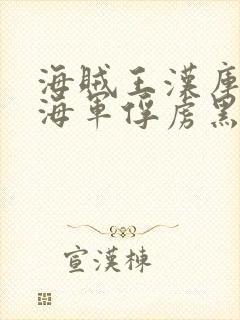 海贼王漢庫
海軍俘虏黑
宣漢棟